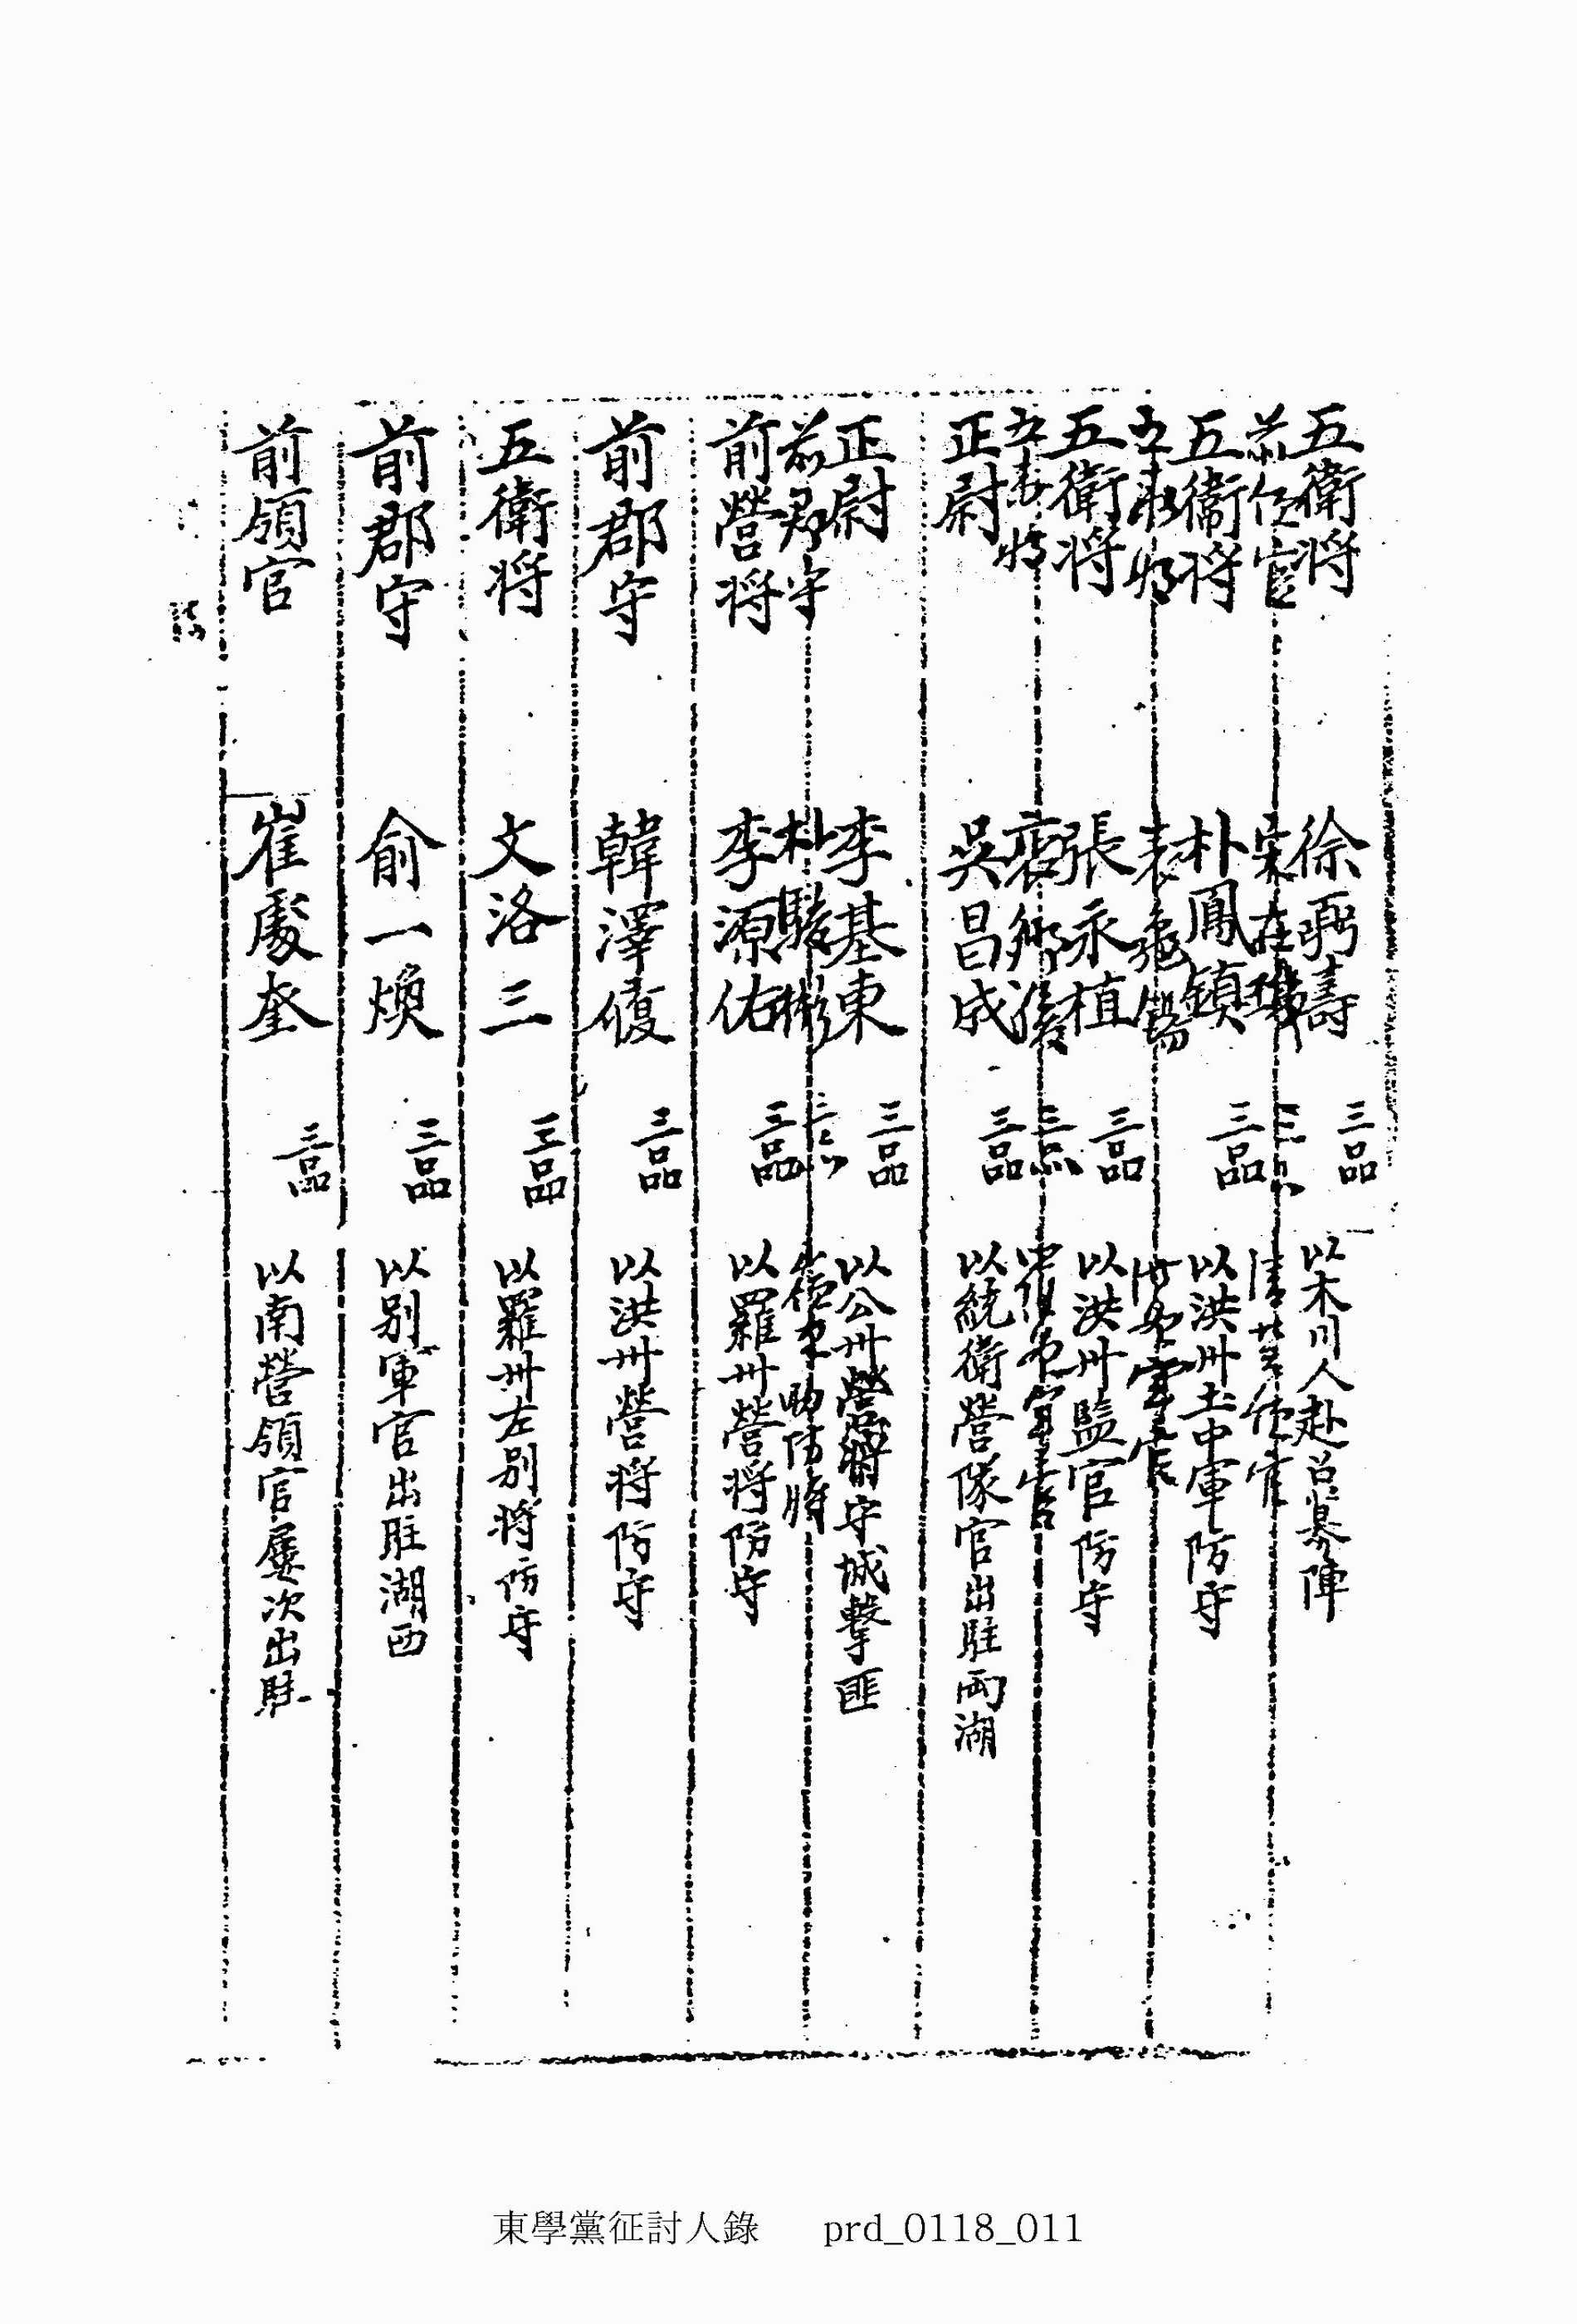 五衛将 徐弼壽 三品 以木川人赴召募陣
前 官 宋在 三品
五衛将 朴鳳鎮 三品 以洪州土中軍防守
五衛将
五衛将 張永植 三品 以洪州監官防守
五衛将 裵 三品
正尉 吳昌成 三品 以統衛營隊官出駐両湖
正尉 李基東 三品 以公州營將守城擊匪
前郡守 朴駿彬 三品 助防將
前營将 李源佑 三品 以羅州營将防守
前郡守 韓澤履 三品 以洪州營将防守
五衛将 文洛三 三品 以羅州左别将防守
前郡守 俞一煥 三品 以别軍官出駐湖西
前領官 崔處奎 三品 以南營領官屢次出駐
東學黨征討人錄 prd_0118_011